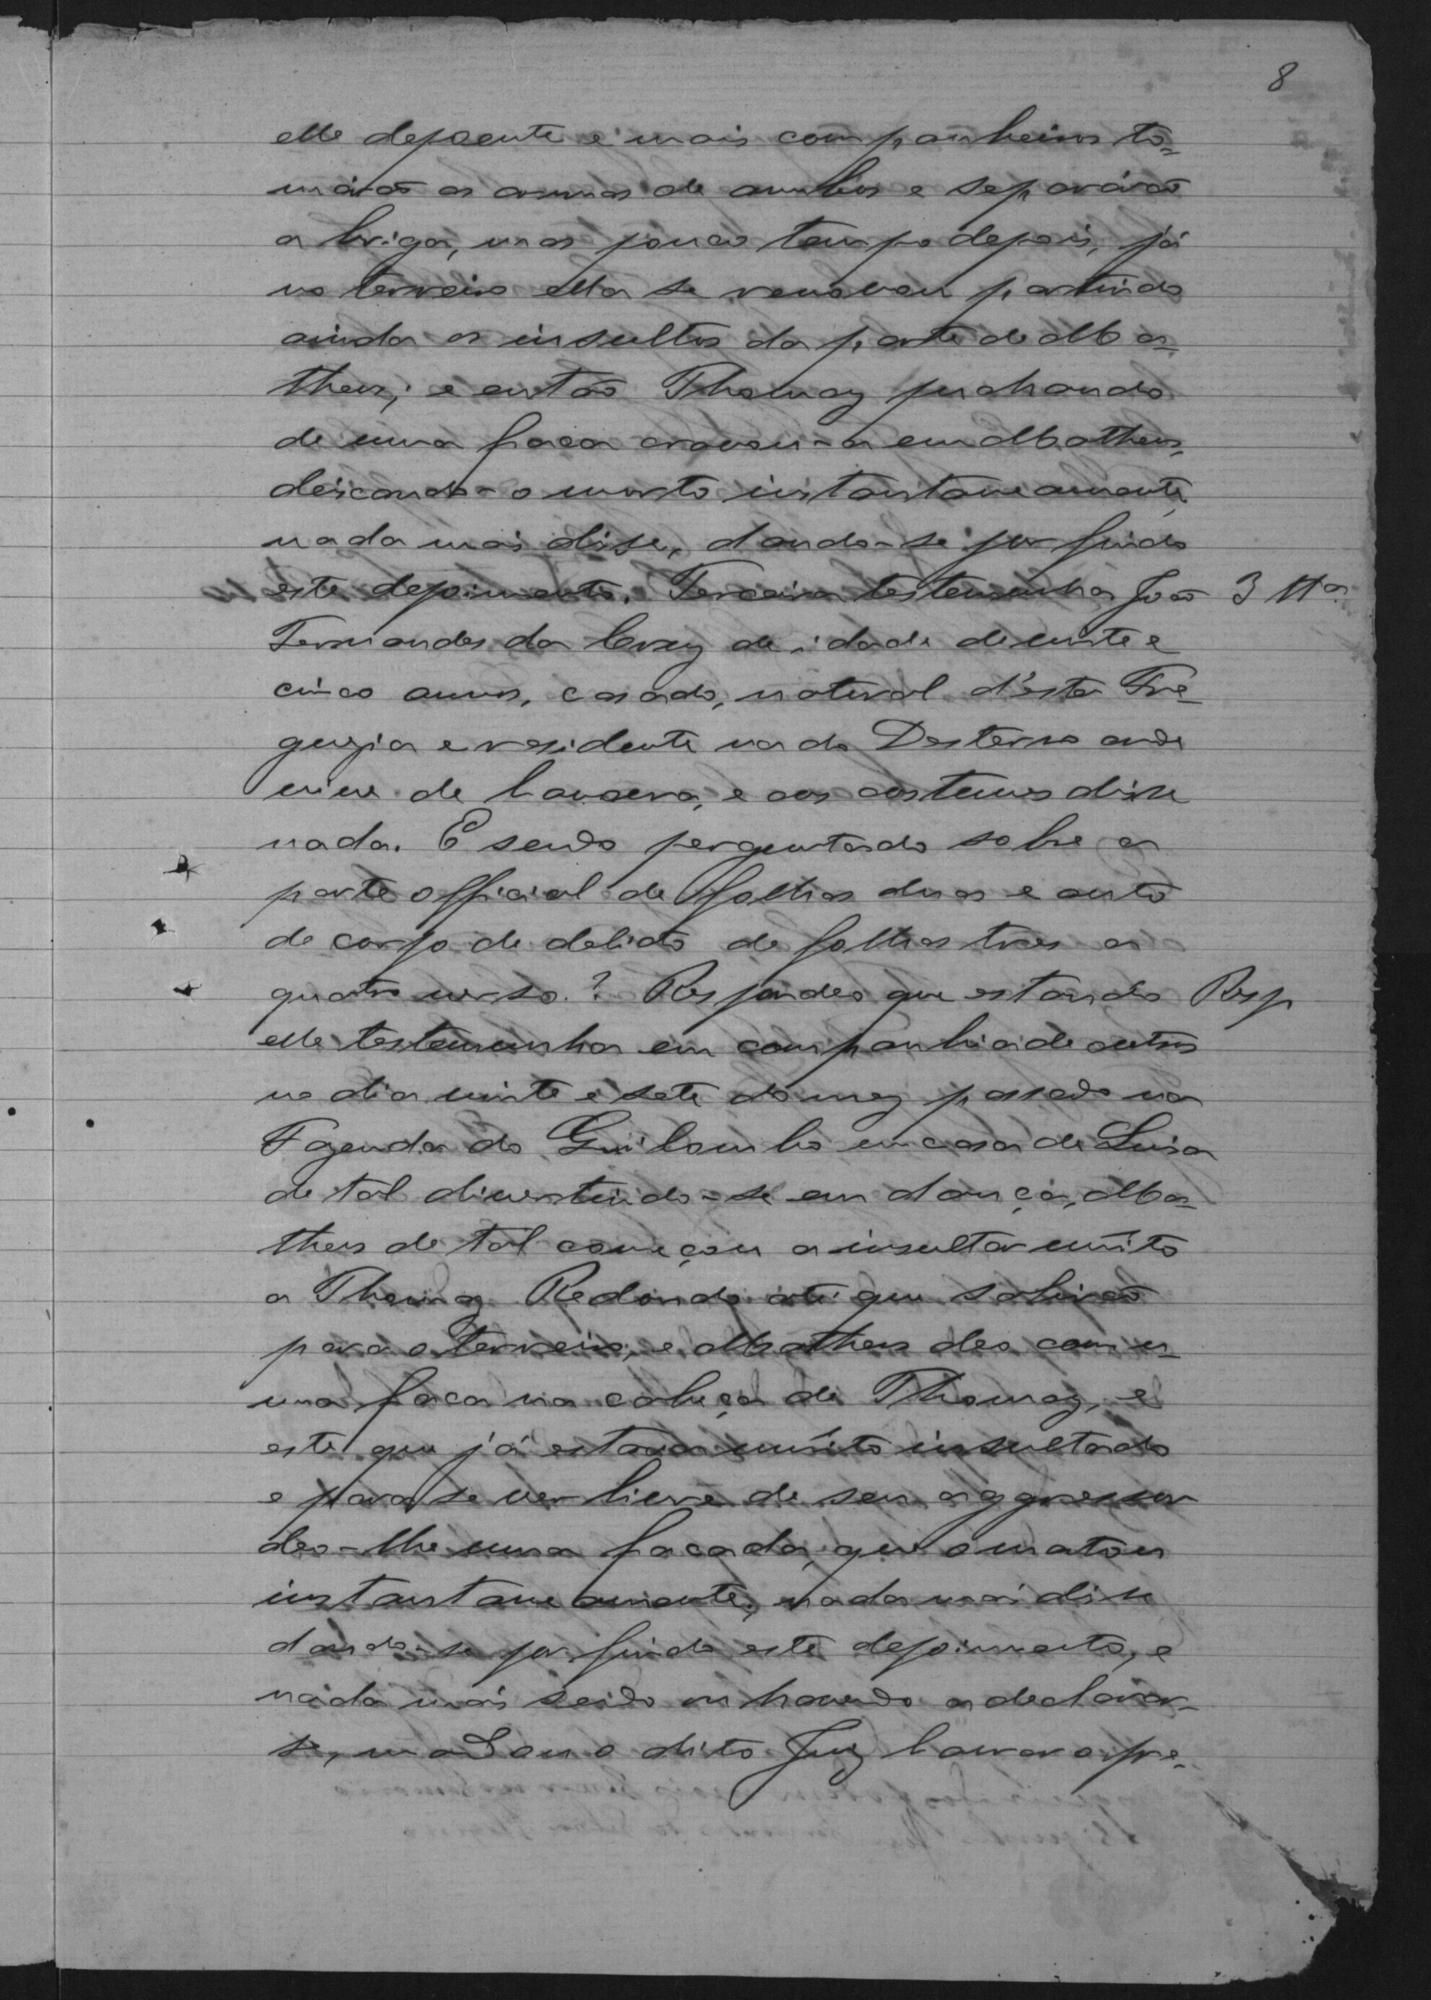 8
elle depoente e mais companheiros to-
márão as armas de ambos e separárão
a briga, mas pouco tempo depois, já
no terreiro ella se renovou partindo
ainda os insultos da parte de Ma-
theus; e então Thomaz puchando
de uma faca cravou-a em Matheus,
deicando-o morto instantaneamente,
nada mais disse, dando-se por findo
este depoimento. Terceira testemunha João 3 Ttª
Fernandes da Cruz de idade de vinte e
cinco annos, casado, natural d'esta Fre-
guezia e residente na do Desterro onde
vive de lavoura, e aos costumes disse
nada. E sendo perguntado sobre a
parte official de folhas duas e auto
de corpo de delicto de folhas tres a
quatro verso.? Respondeo que estando Resp
elle testemunha em companhia de outros
no dia vinte e sete do mez passado na
Fazenda do Quilombo em casa de Luisa
de tal divertindo-se em dança, Ma-
theus de tal começou a insultar muito
a Thomaz Redondo até que sahirão
para o terreiro, e Matheus deo com u-
ma faca na cabeça de Thomaz, e
este que já estava muito insultado
e para se ver livre de seu aggressor
deo-lhe uma facada, que o matou
instantaneamente, nada mais disse
dando-se por findo este depoimento, e
nada mais sendo ou havendo a declarar-
se, mandou o dito Juiz lavrar o pre-